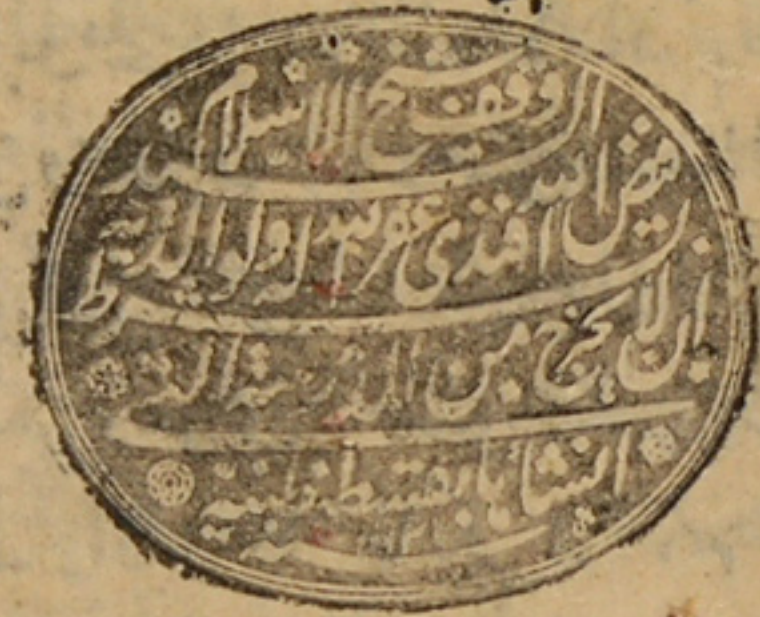 وقف شيخ الاسلام السيد
فيض الله افندى غفر الله له ولوالديه بشرط
ان لا يخرج من المدرسة التى
انشأها بقسطنطينية
سنه